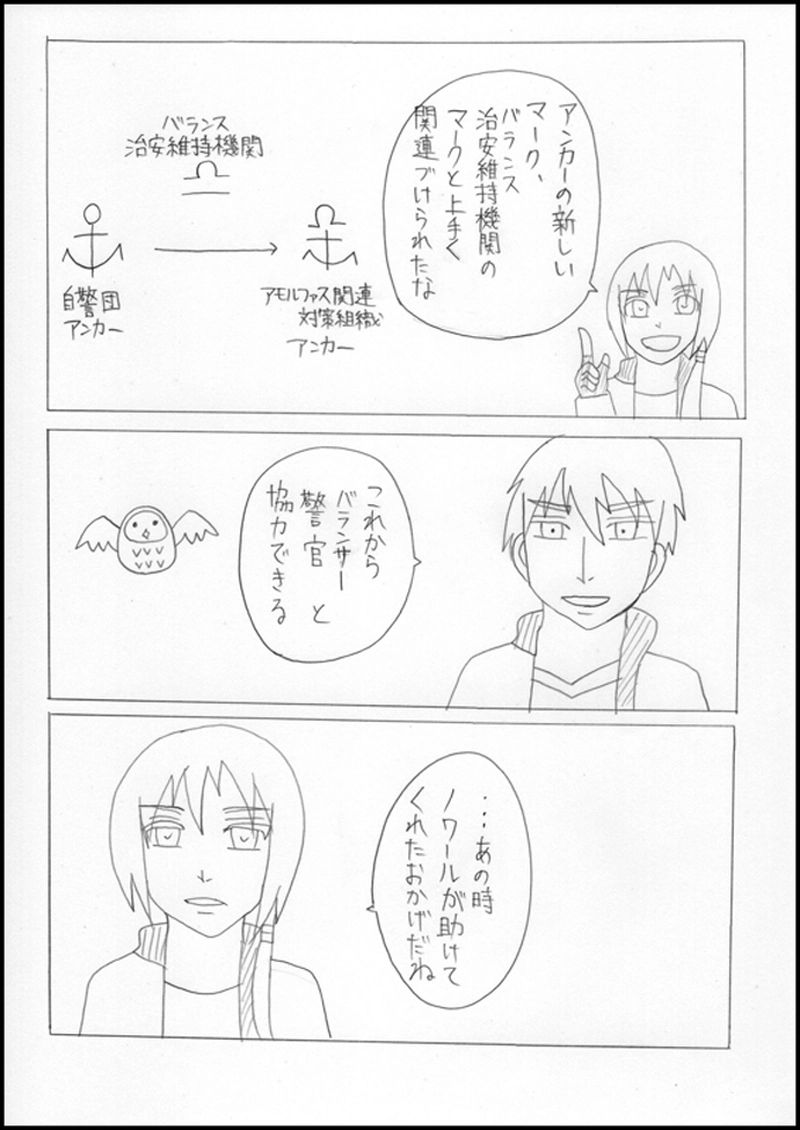 アンカーの新しい
マーク、
バランス
治安維持機関の
マークと上手く
関連づけられたな
バランス
治安維持機関
自警団
アンカー
アモルファス関連
対策組織
アンカー
これから
バランサー
警官と
協力できる
・・・あの時
ノワールが助けて
くれたおかげだね